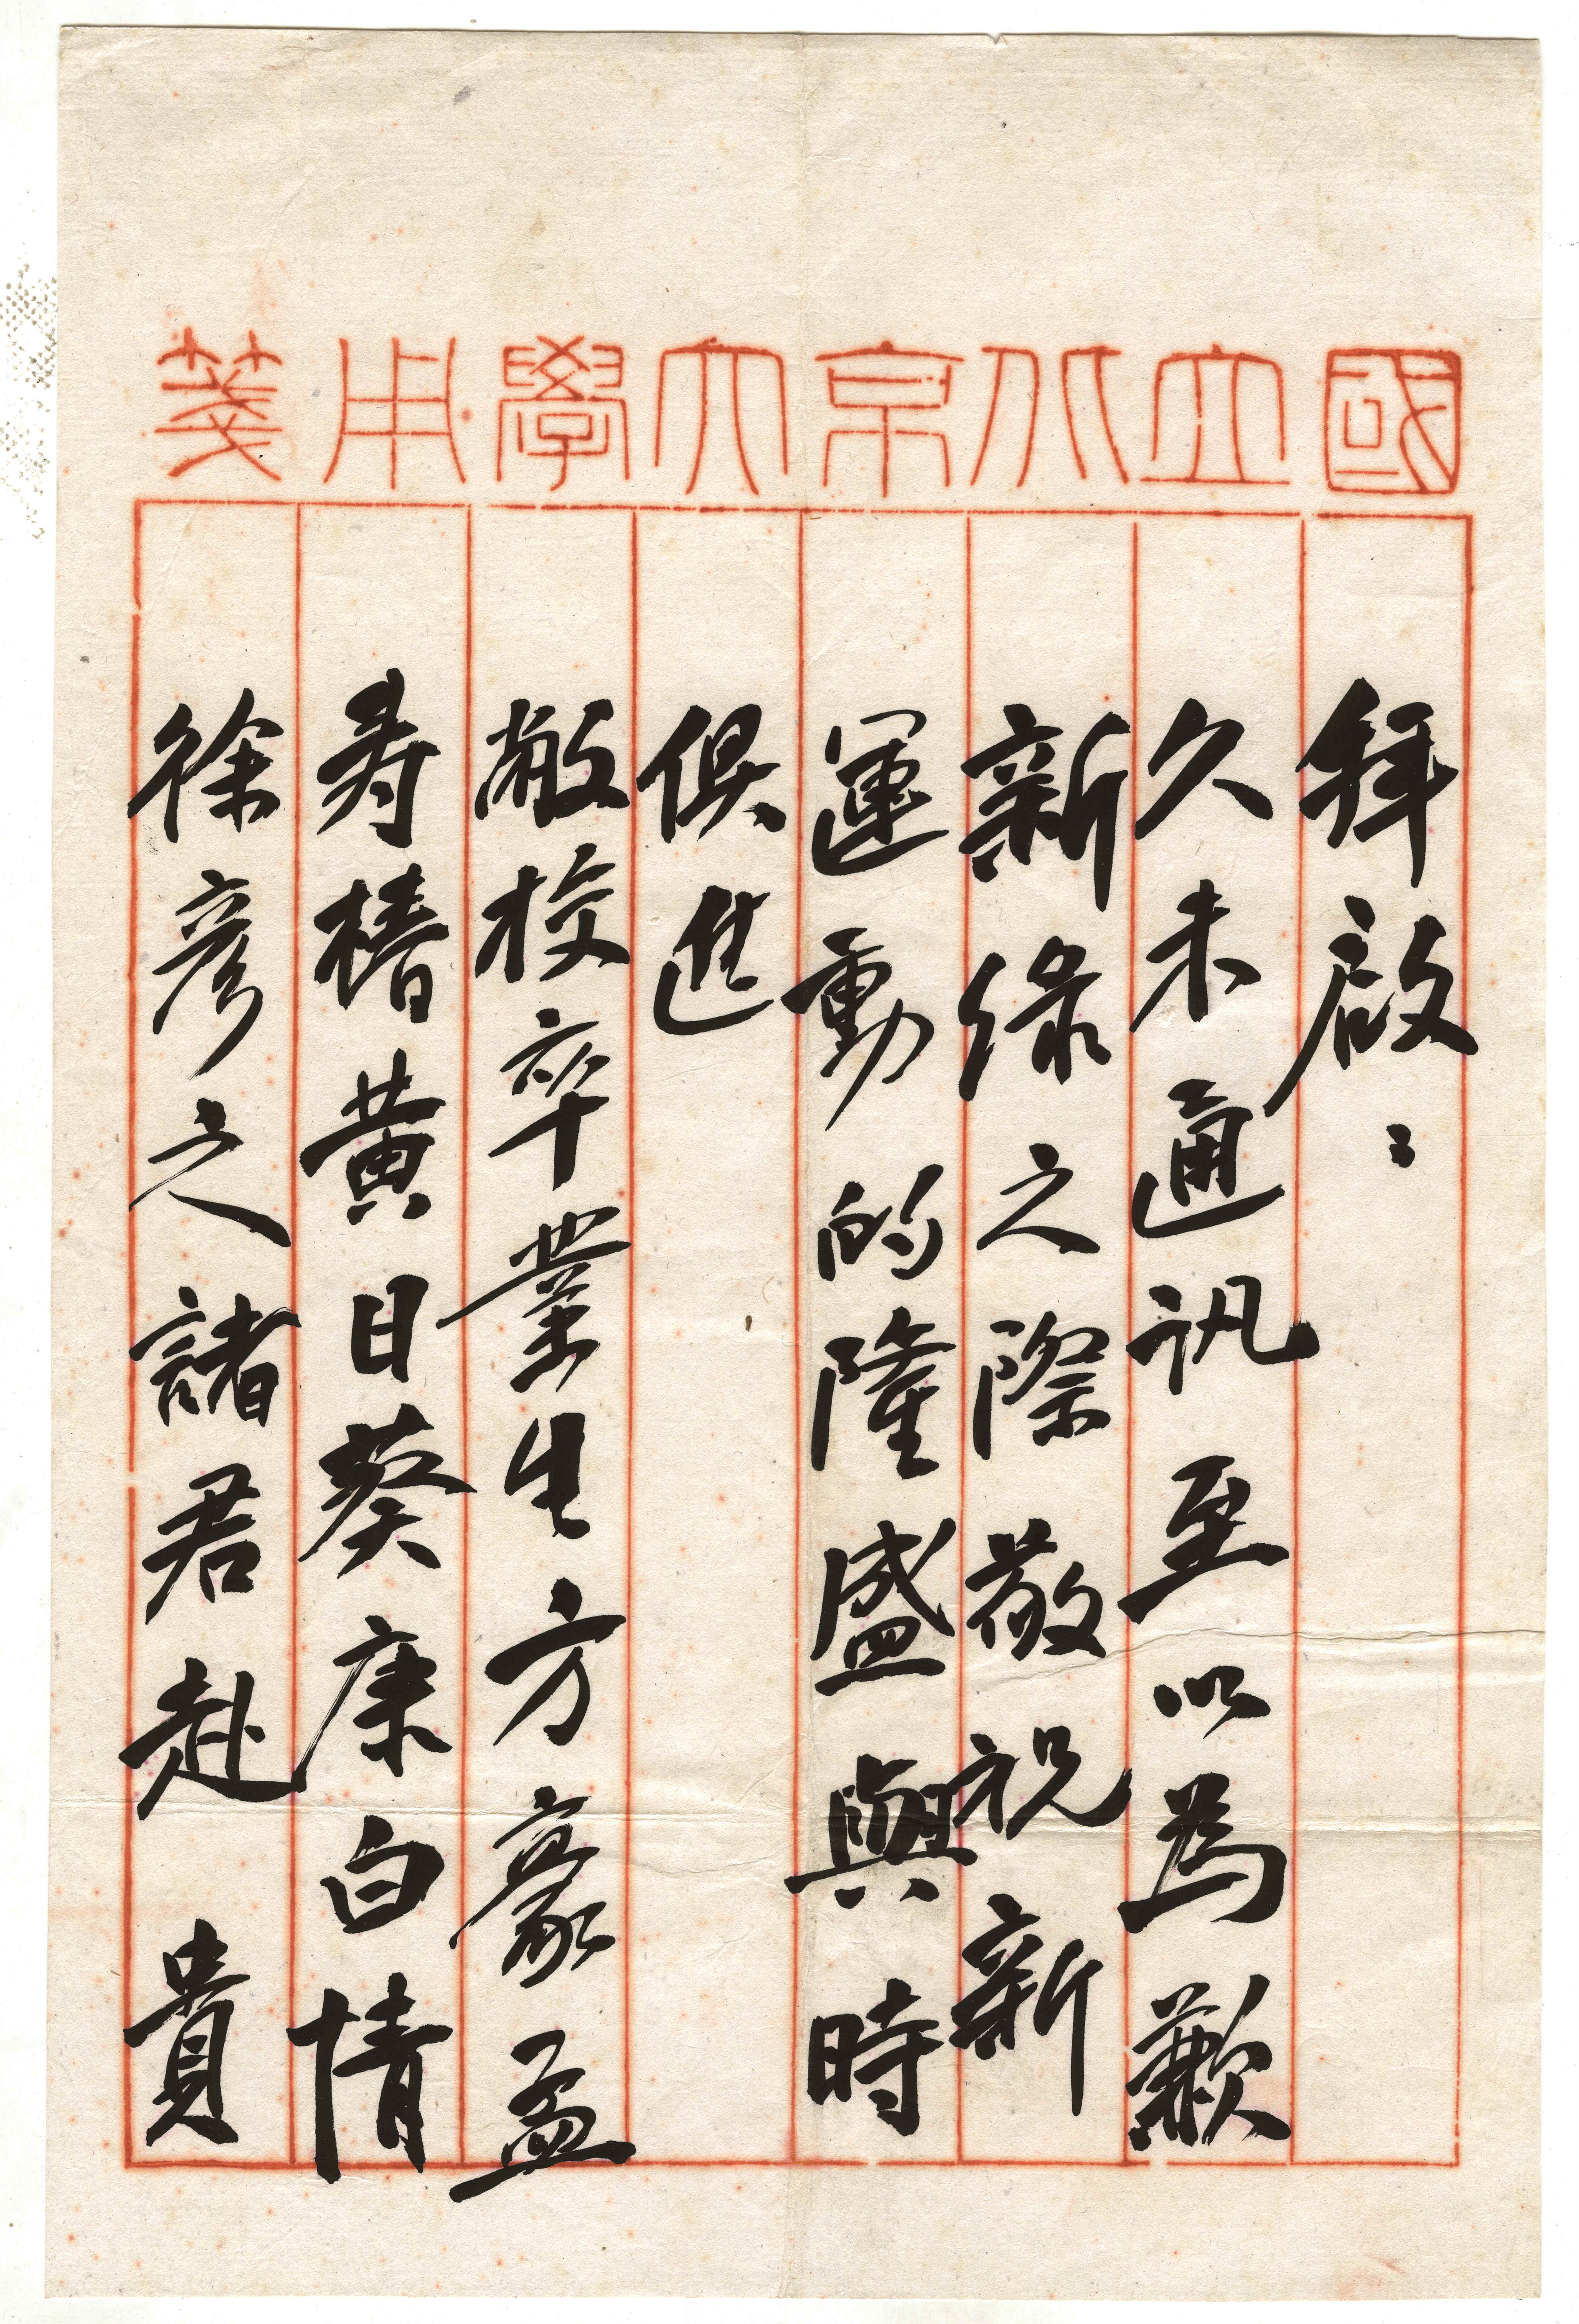 國立北京大學用箋
拜啟:
久未通訊至以為歉
新綠之際敬祝新
運動的隆盛與時
俱進
敝校卒業生方豪孟
寿椿黃日葵康白情
徐彥之諸君赴 貴